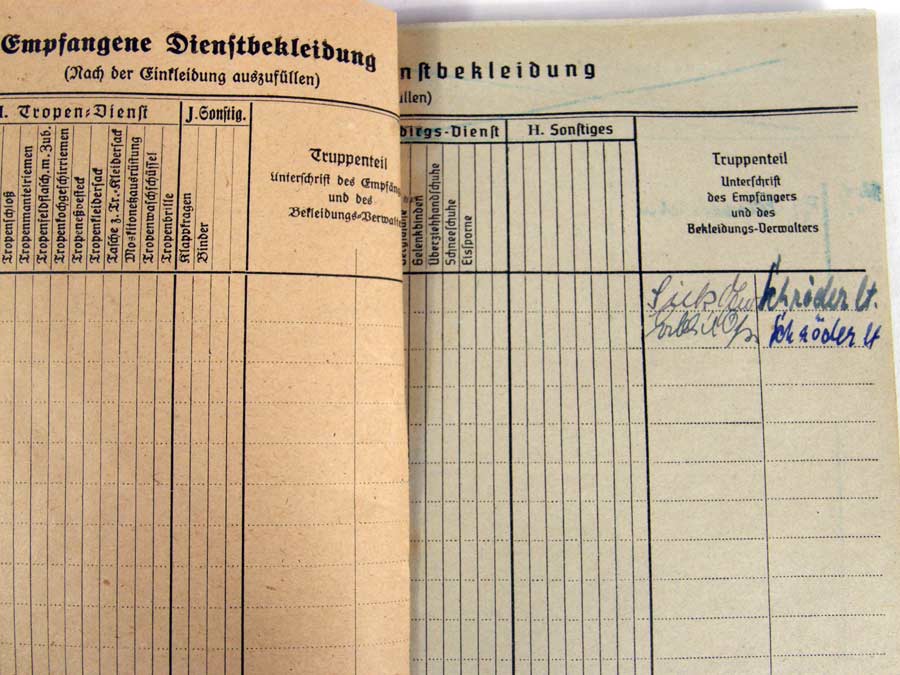 Empfangene Dienstbekleidung
(Nach der Einkleidung auszufüllen)
Tropen-Dienst
J. Sonstig.
Tropenmantelriemen
Tropenfeldflasch. m. Zub.
Tropenkochgeschirriemen
Tropeneßbesteck
Tropenkleidersack
Tasche z. Tr.-Kleidersack
Moskitonetzausrüstung
Tropenwaschschüssel
Tropenbrille
Klappkragen
Binder
Truppenteil
Unterschrift des Empfäng
und des
Bekleidungs-Verwalters
nstbekleidung
üllen)
birgs-Dienst
H. Sonstiges
Gelenkbinden
Überziehhandschuhe
Schneeschuhe
Eissporne
Truppenteil
Unterschrift
des Empfängers
und des
Bekleidungs-Verwalters
Schröder lt.
Schröder lt